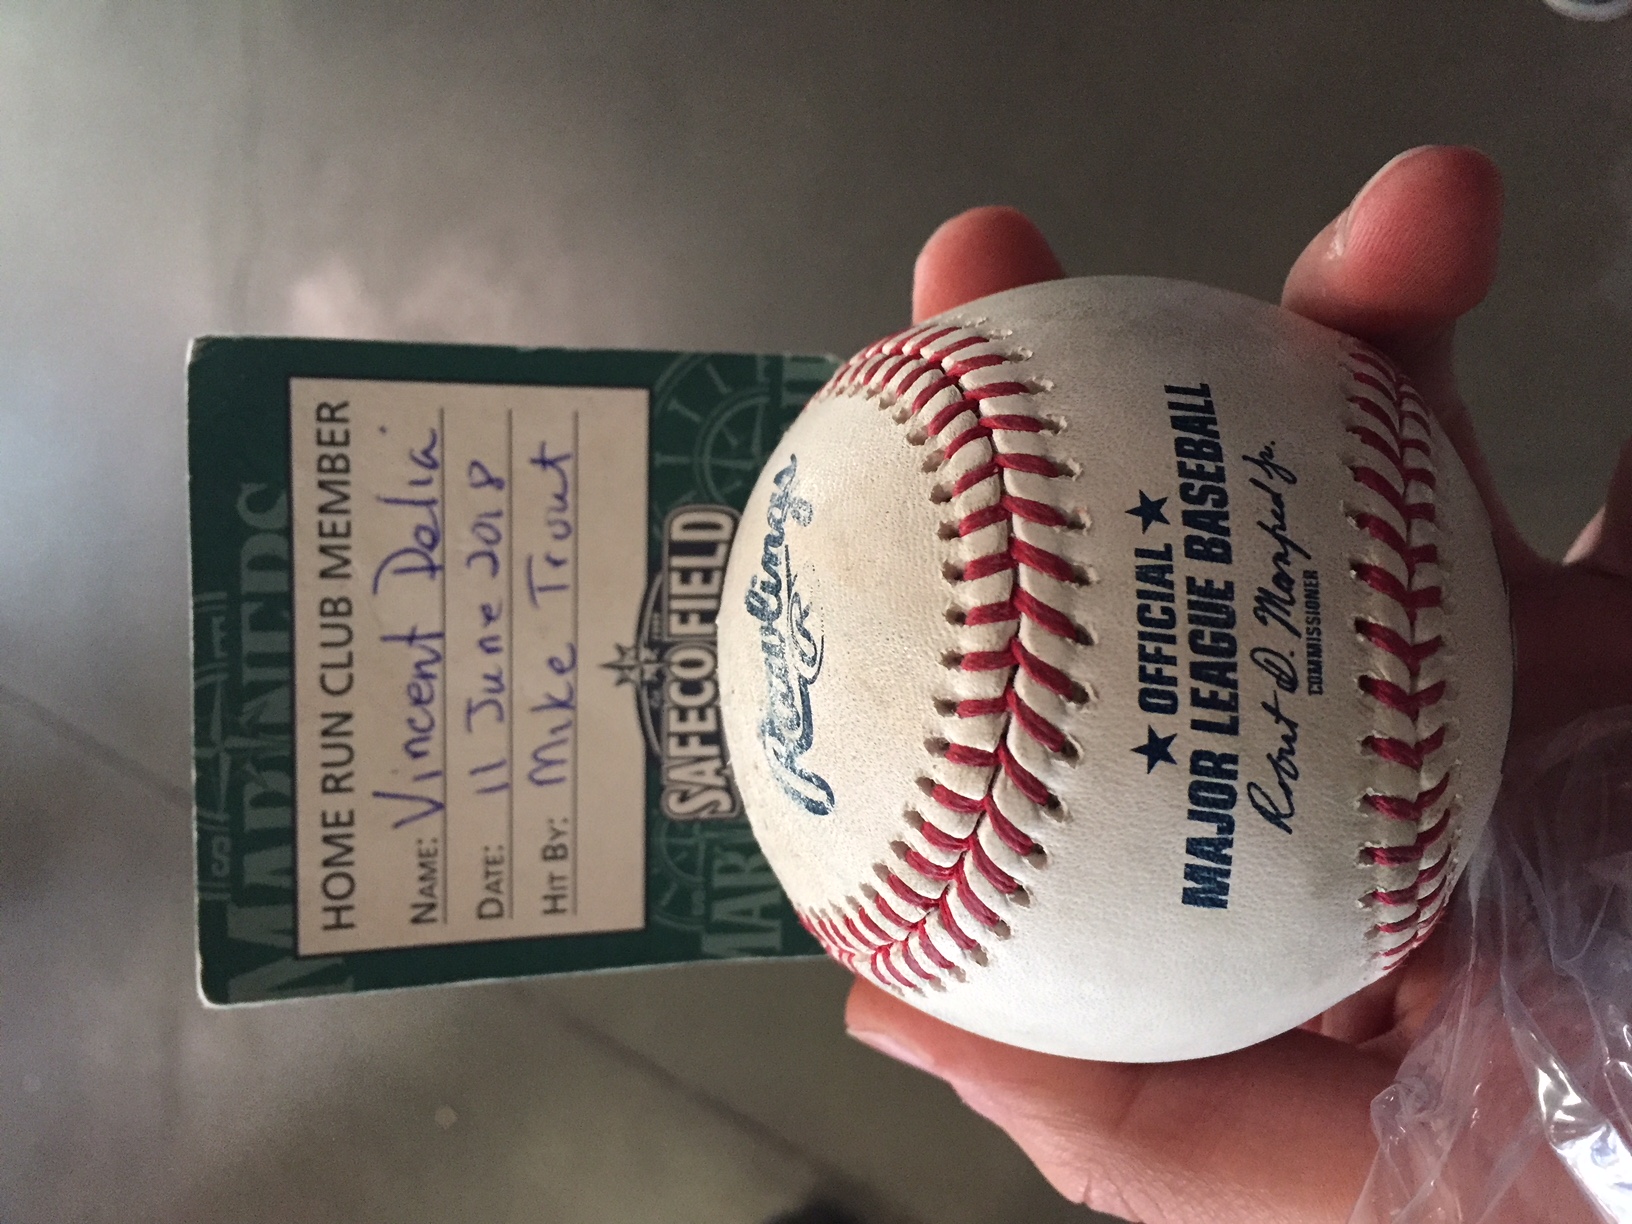 MARINERS
HOME RUN CLUB MEMBER
NAME: Vincent Delia
DATE: 11 June 2018
HIT BY: Mike Trout
SAFECO FIELD
Rawlings
R
★ OFFICIAL ★
MAJOR LEAGUE BASEBALL
Robert D. Manfred Jr.
COMMISSIONER